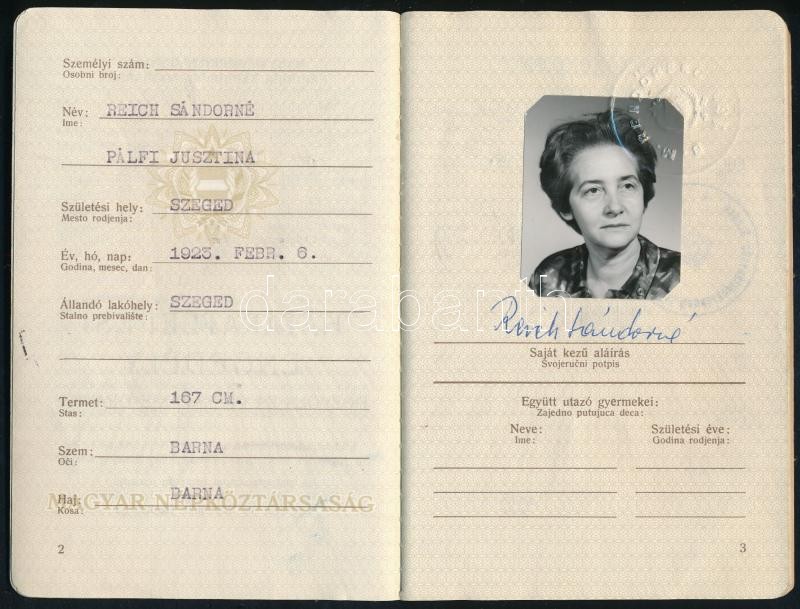 Személyi szám:
Osobni broj:
Név: REICH SÁNDORNÉ
Ime:
PÁLFI JUSZTINA
Születési hely: SZEGED
Mesto rodjenja:
Év, hó, nap: 1923. FEBR. 6.
Godina, mesec, dan:
Állandó lakóhely: SZEGED
Stalno prebivalište:
Termet: 167 CM.
Stas:
Szem: BARNA
Oči:
Haj: BARNA
Kosa:
MAGYAR NÉPKÖZTÁRSASÁG
2
darabanth
Reich Sándorné
Saját kezű aláírás
Svojeručni potpis
Együtt utazó gyermekei:
Zajedno putujuca deca:
Neve: Születési éve:
Ime: Godina rodjenja:
3